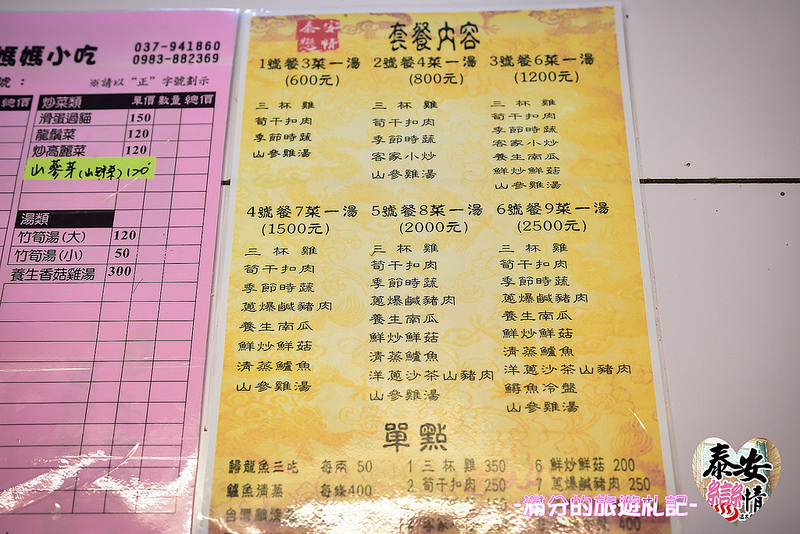 媽媽小吃
037-941860
0983-882369
號：
※請以“正”字號劃示
總價 炒菜類 單價 數量 總價
滑蛋過貓 150
龍鬚菜 120
炒高麗菜 120
山蔘芽(山野菜) 120
湯類
竹筍湯(大) 120
竹筍湯(小) 50
養生香菇雞湯 300
泰安戀情
套餐內容
1號餐3菜一湯
(600元)
三杯雞
筍干扣肉
季節時蔬
山參雞湯
2號餐4菜一湯
(800元)
三杯雞
筍干扣肉
季節時蔬
客家小炒
山參雞湯
3號餐6菜一湯
(1200元)
三杯雞
筍干扣肉
季節時蔬
客家小炒
養生南瓜
鮮炒鮮菇
山參雞湯
4號餐7菜一湯
(1500元)
三杯雞
筍干扣肉
季節時蔬
蔥爆鹹豬肉
養生南瓜
鮮炒鮮菇
清蒸鱸魚
山參雞湯
5號餐8菜一湯
(2000元)
三杯雞
筍干扣肉
季節時蔬
蔥爆鹹豬肉
養生南瓜
鮮炒鮮菇
清蒸鱸魚
洋蔥沙茶山豬肉
山參雞湯
6號餐9菜一湯
(2500元)
三杯雞
筍干扣肉
季節時蔬
蔥爆鹹豬肉
養生南瓜
鮮炒鮮菇
清蒸鱸魚
洋蔥沙茶山豬肉
鱘魚冷盤
山參雞湯
單點
鱘龍魚三吃 每兩 50
鱸魚清蒸 每條400
台灣鯛清
1 三杯雞 350
2 筍干扣肉 250
6 鮮炒鮮菇 200
7 蔥爆鹹豬肉 250
400
-滿分的旅遊札記-
泰安戀情